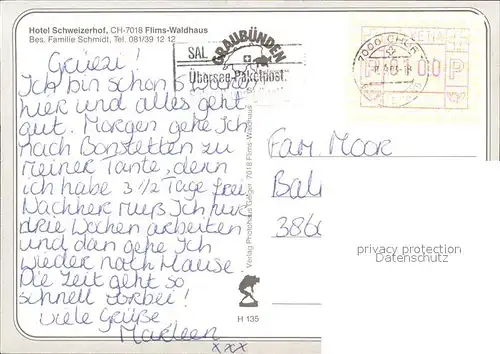 Hotel Schweizerhof, CH-7018 Flims-Waldhaus
Bes. Familie Schmidt, Tel. 081/39 12 12
SAL
GRAUBÜNDEN
Übersee-Paketpost
7000 CHUR
0100
P P
Grüezi!
Ich bin schon 5 Wochen
hier und alles geht
gut. Morgen gehe Ich
nach Bonstetten zu
meiner Tante, denn
ich habe 3 1/2 Tage frei.
Nachher muß Ich nur
drei Wochen arbeiten
und dan gehe Ich
wieder nach Hause.
Die Zeit geht so
schnell vorbei!
viele Grüße
Marleen
xxx
Verlag Photohaus Geiger 7018 Flims-Waldhaus
H 135
Fam. Moor
Bal
3860
privacy protection
Oldthing.com